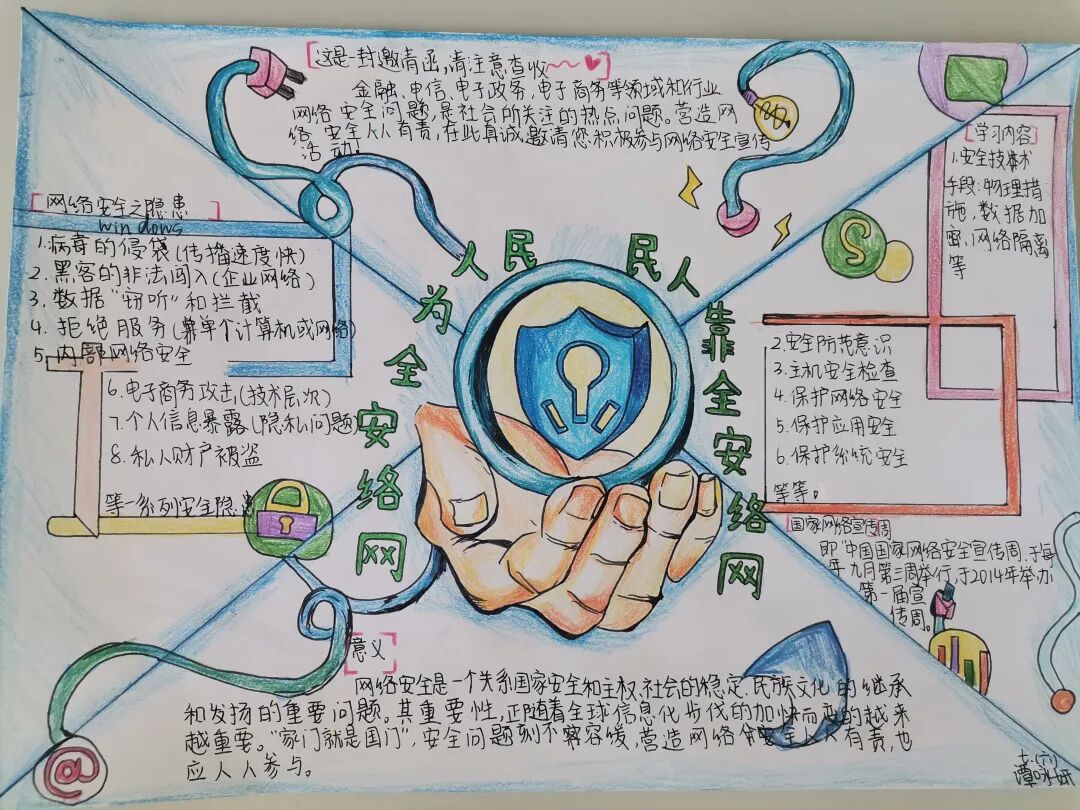 这是一封邀请函,请注意查收
金融、电信、电子政务、电子商务等领域和行业
网络安全问题,是社会所关注的热点问题。营造网
络安全人人有责,在此真诚邀请您积极参与网络安全宣传
活动!
网络安全之隐患
windows
1.病毒的侵袋(传播速度快)
2.黑客的非法闯入(企业网络)
3.数据“窃听”和拦截
4.拒绝服务(兼单个计算机或网络)
5.内部网络安全
6.电子商务攻击(技术层次)
7.个人信息暴露(隐私问题
8.私人财产被盗
等一系列安全隐患
网络安全为人民
网络安全靠人民
学习内容
1.安全技术
手段:物理措
施,数据加
密,网络隔离
等
2.安全防范意识
3.主机安全检查
4.保护网络安全
5.保护应用安全
6.保护系统安全
等等。
国家网络宣传周
即“中国国家网络安全宣传周.于每
年九月第三周举行,于2014年举办
第一届宣
传周。
意义
网络安全是一个关系国家安全和主权、社会的稳定、民族文化的继承
和发扬的重要问题。其重要性,正随着全球信息化步伐的加快而变的越来
越重要。“家门就是国门”,安全问题刻不容缓,营造网络安全人人有责,也
应人人参与。
@